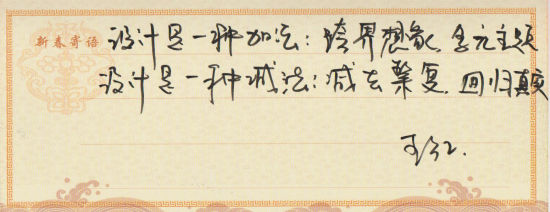 新春寄语
设计是一种加法：跨界想象，多元主题
设计是一种减法：减去繁复，回归真实